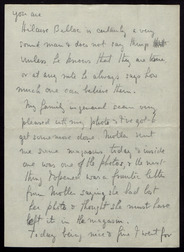 you are
Hilaire Belloc is certainly a very
sound man & does not say things
unless he knows that they are
or at any rate he always says how
much one can believe them.
My family in general seem very
pleased with my photo & I've got to
get some more done. Mother sent
me some magazines today & inside
one was one of the photos, & the next
thing I opened was a letter
from Mother saying she had lost
her photo & thought she must have
left it in the magazine.
Today being nice & fine I went for